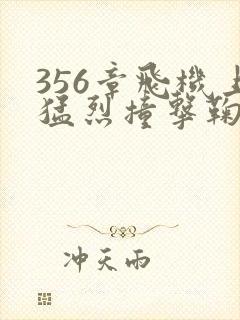 356章飛機上
猛烈撞擊鞠
冲天雨